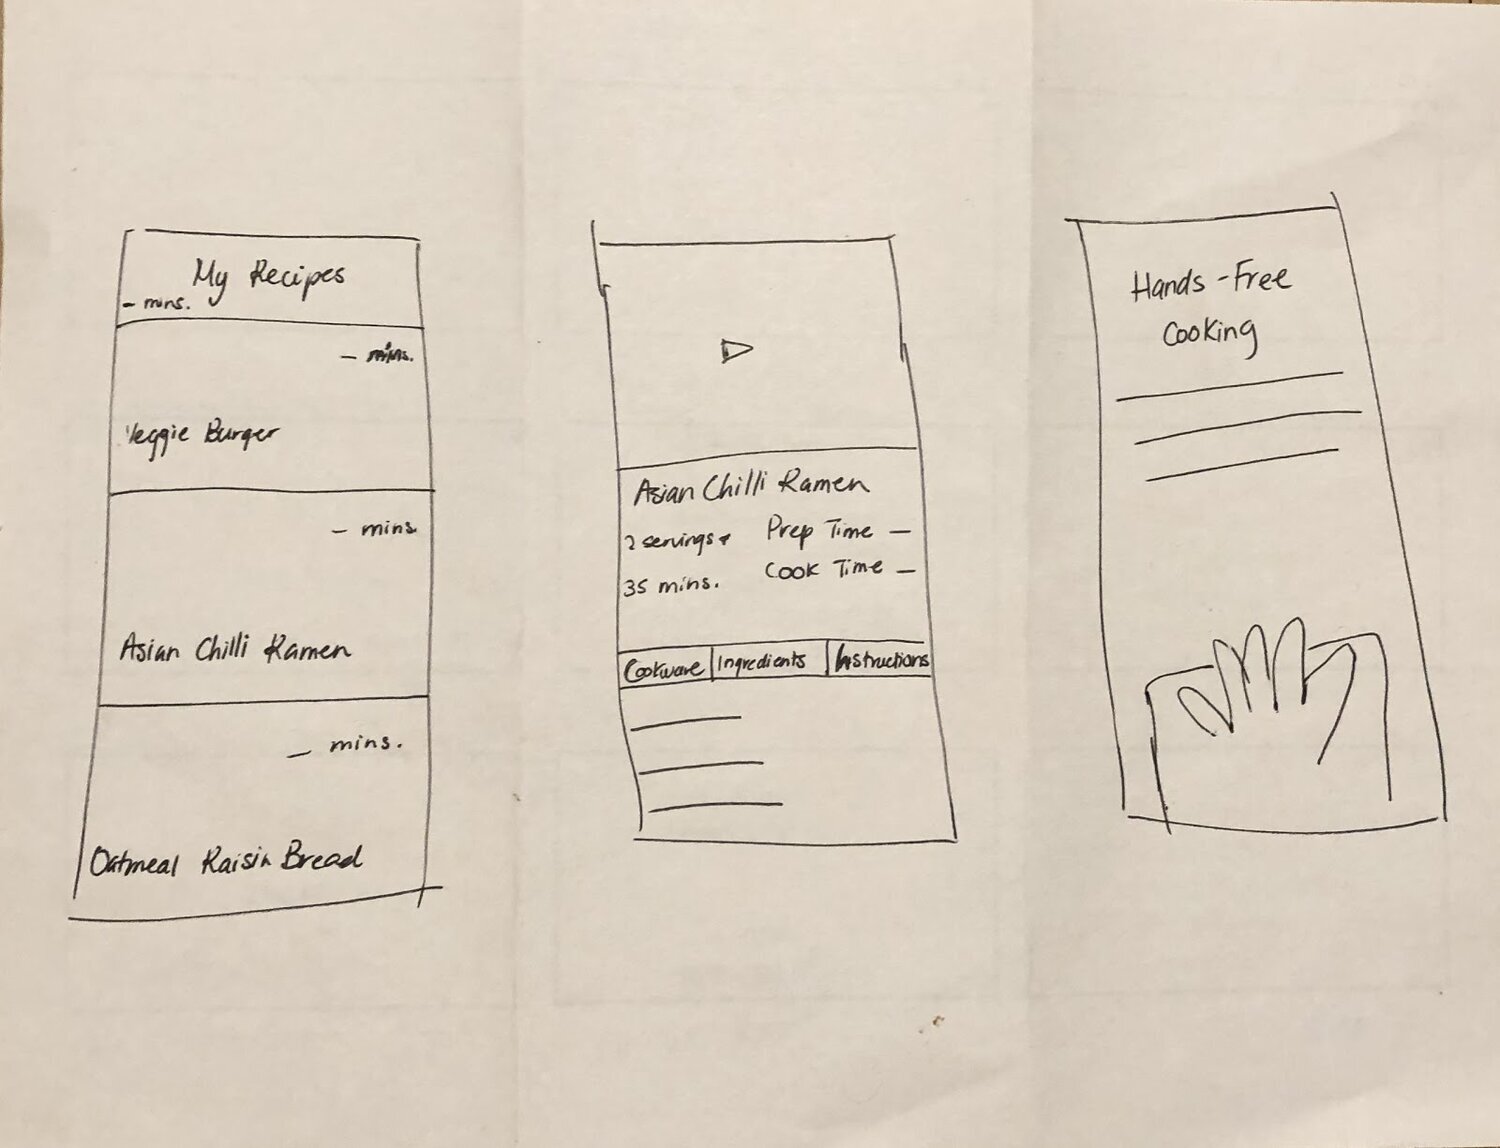 My Recipes
– mins.
– mins.
Veggie Burger
– mins
Asian Chilli Ramen
– mins.
Oatmeal Raisin Bread
Asian Chilli Ramen
2 servings
Prep Time –
35 mins.
Cook Time –
Cookware Ingredients Instructions
Hands-Free
Cooking